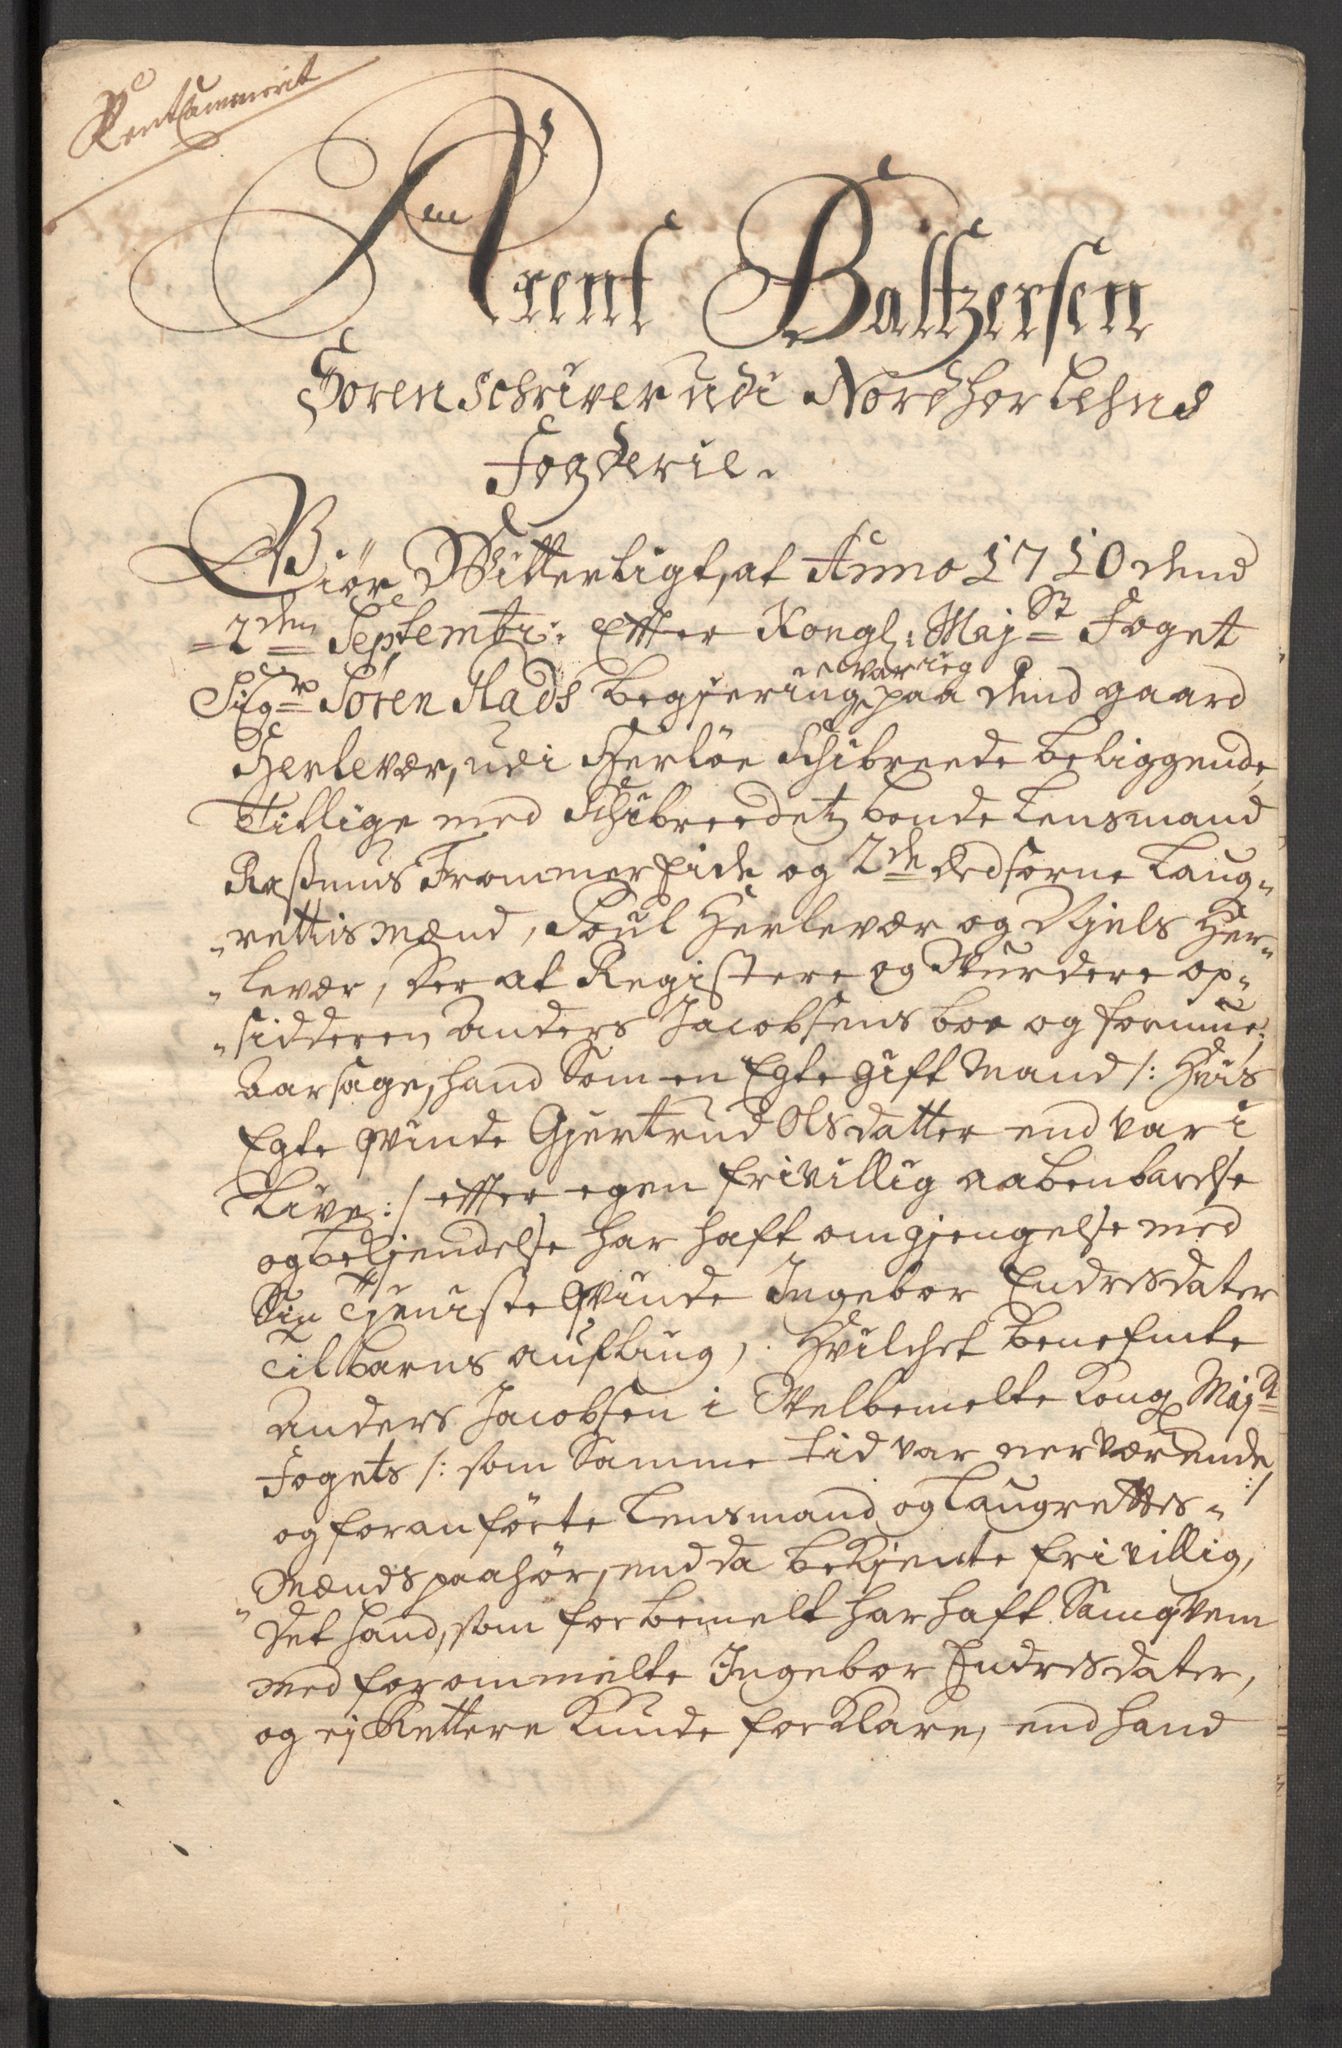 RentCammerit
Arent Baltzersen
Sorenschriver udi Nordhorlehns
Fogderie.
Giør Witterligt, at Anno 1710 dend
2den Septembr: Effter Kongl: Maj:st Foget
Sigr Sören Stads begiering, var ieg paa dend gaard
Herlevær, udi Herløe Schibreede beliggende,
Tillige med Schibreedetz bonde Lensmand
Rasmus Frommereide og 2de Eedsorne Laug-
rettismænd, Poul Herlevær og Niels Her-
levær, der at Registere og Wurdere op-
sidderen Anders Jacobsens boe og formue;
Aarsage, hand Som en Egte gift Mand /: Hvis
Egte qvinde Gjertrud Olsdatter end var i
Live :/ effter egen frivillig aabenbarelse
og bekjendelse har haft omgjengelse med
Sin Tjeniste qvinde Ingebor Endresdater
Til barns aufling, Hvilchet benefnte
Anders Jacobsen i Welbemelte Kongl Maj:st
Fogets /: som Samme tid var nerværende :/
og foranførte Lensmand og Laugrettes-
Mænds paahør, end da bekjente frivillig,
Det hand, som forbemelt har haft Samqvem
med forommelte Ingebor Endresdater,
og ej Rettere Kunde forklare, end hand